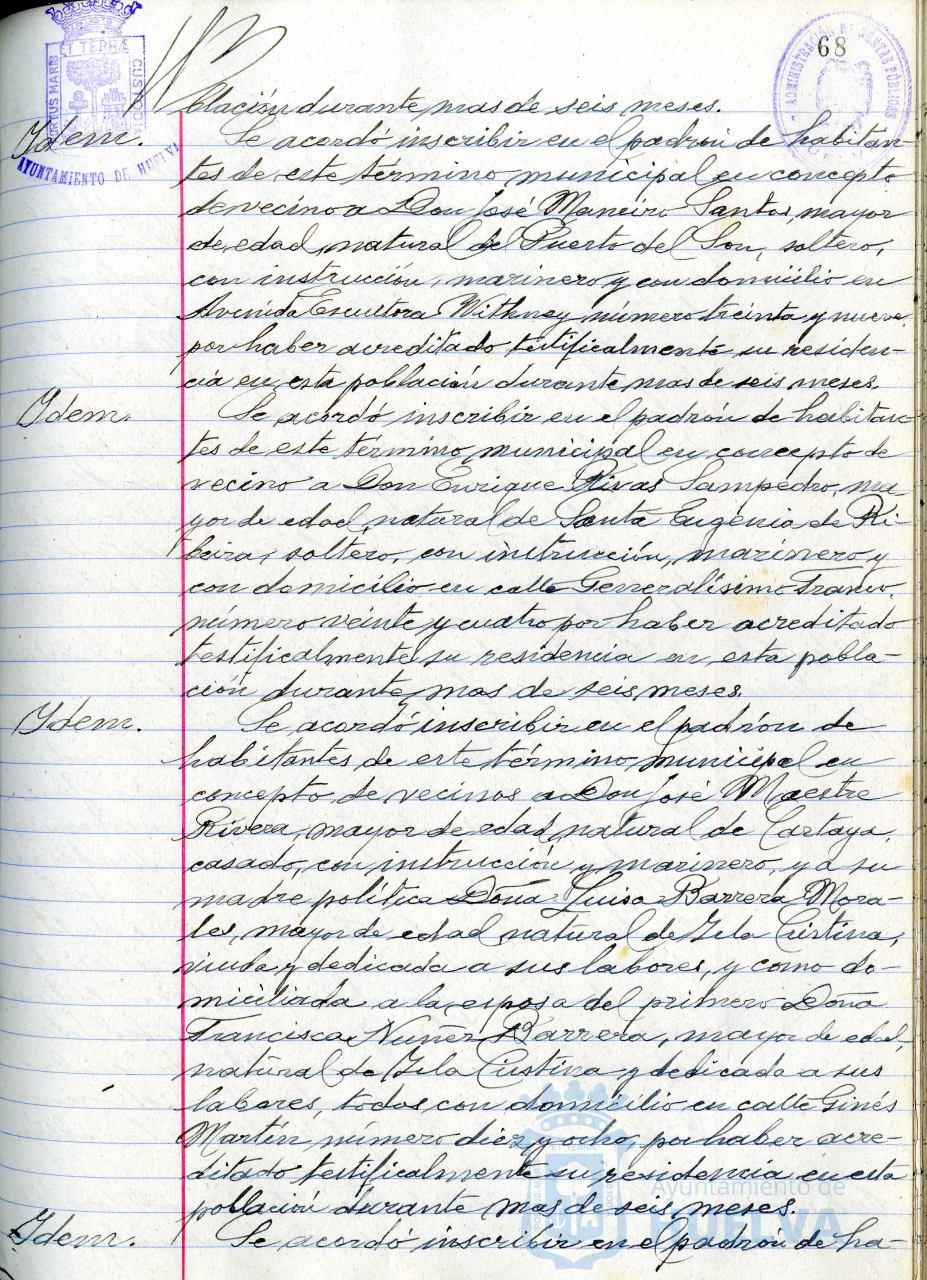 68
PORTUS MARIS ET TERRAE CUSTODIA
AYUNTAMIENTO DE HUELVA
ADMINISTRACION DE RENTAS PÚBLICAS
blación durante mas de seis meses.
Idem. Se acordó inscribir en el padrón de habitan-
tes de este término municipal en concepto
de vecino a Don José Maneiro Santos, mayor
de edad, natural del Puerto del Son, soltero,
con instrucción, marinero y con domicilio en
Avenida Escultora Withney número treinta y nueve,
por haber acreditado testificalmente su residen-
cia en esta población durante mas de seis meses.
Idem. Se acordó inscribir en el padrón de habitan-
tes de este término municipal en concepto de
vecino a Don Enrique Rivas Sampedro, ma-
yor de edad, natural de Santa Eugenia de Ri-
beira, soltero, con instrucción, marinero y
con domicilio en calle Generalísimo Franco,
número veinte y cuatro por haber acreditado
testificalmente su residencia en esta pobla-
ción durante mas de seis meses.
Idem. Se acordó inscribir en el padrón de
habitantes de este término municipal en
concepto de vecinos a Don José Maestre
Rivera, mayor de edad, natural de Cartaya,
casado, con instrucción y marinero, y a su
madre política Doña Luisa Barrera Mora-
les, mayor de edad natural de Isla Cristina,
viuda y dedicada a sus labores, y como do-
miciliada a la esposa del primero Doña
Francisca Nuñez Barrera, mayor de edad,
natural de Isla Cristina y dedicada a sus
labores, todos con domicilio en calle Ginés
Martín número diez y ocho, por haber acre-
ditado testificalmente su residencia en esta
población durante mas de seis meses.
Idem. Se acordó inscribir en el padrón de ha-
Ayuntamiento de
HUELVA